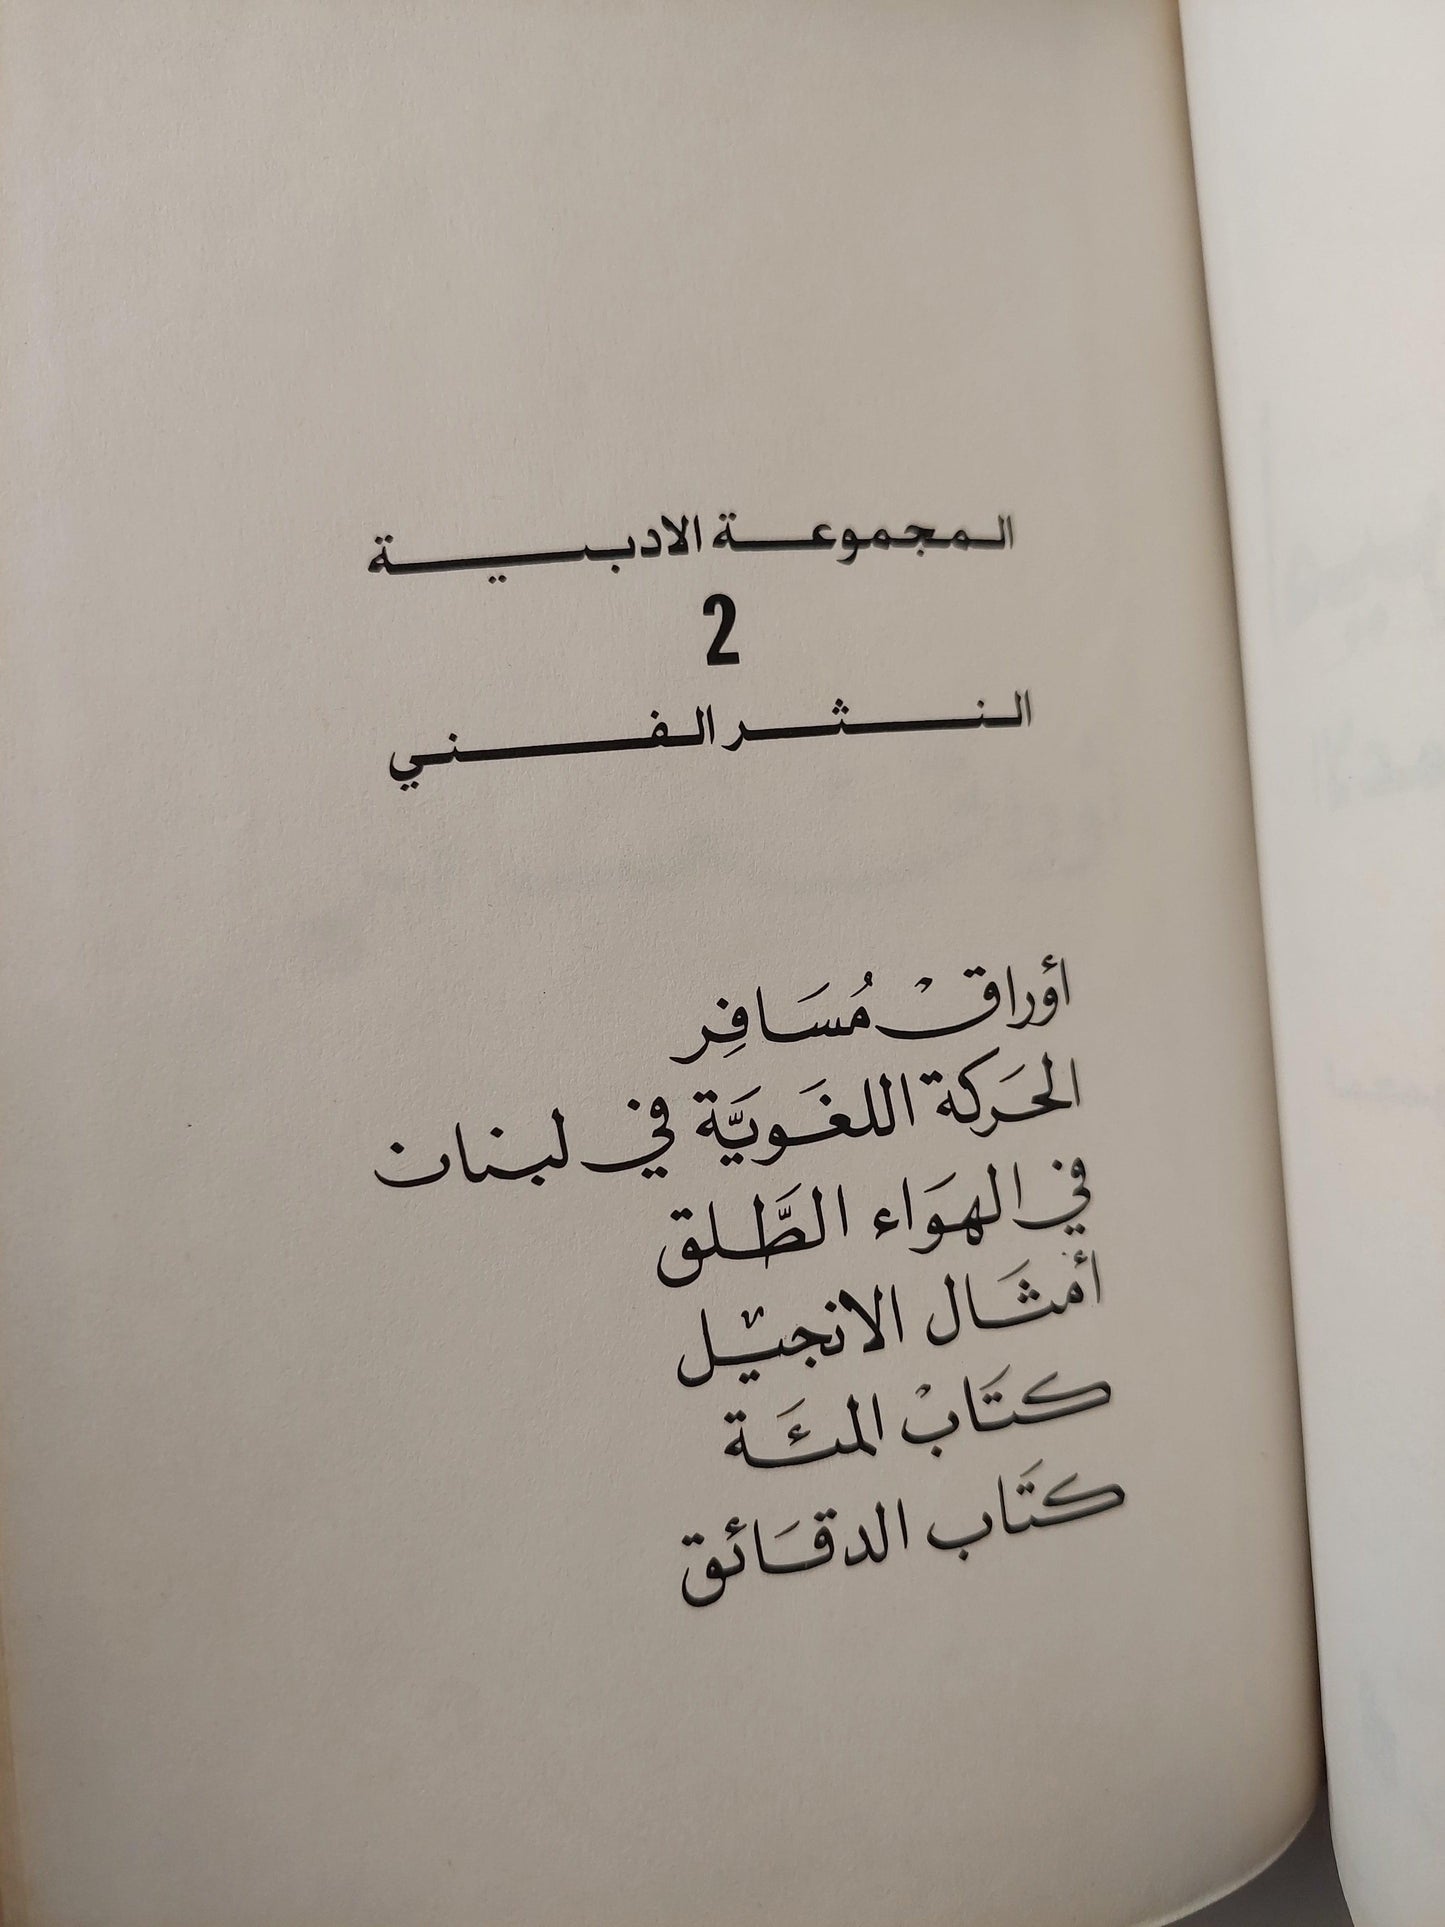 المجموعة الادبية
2
النثر الفني
أوراق مُسَافِر
الحَركة اللغَويَّة في لبنان
في الهوَاء الطَّلق
أمثَال الانجيل
كتَاب المئَة
كتَاب الدقَائق